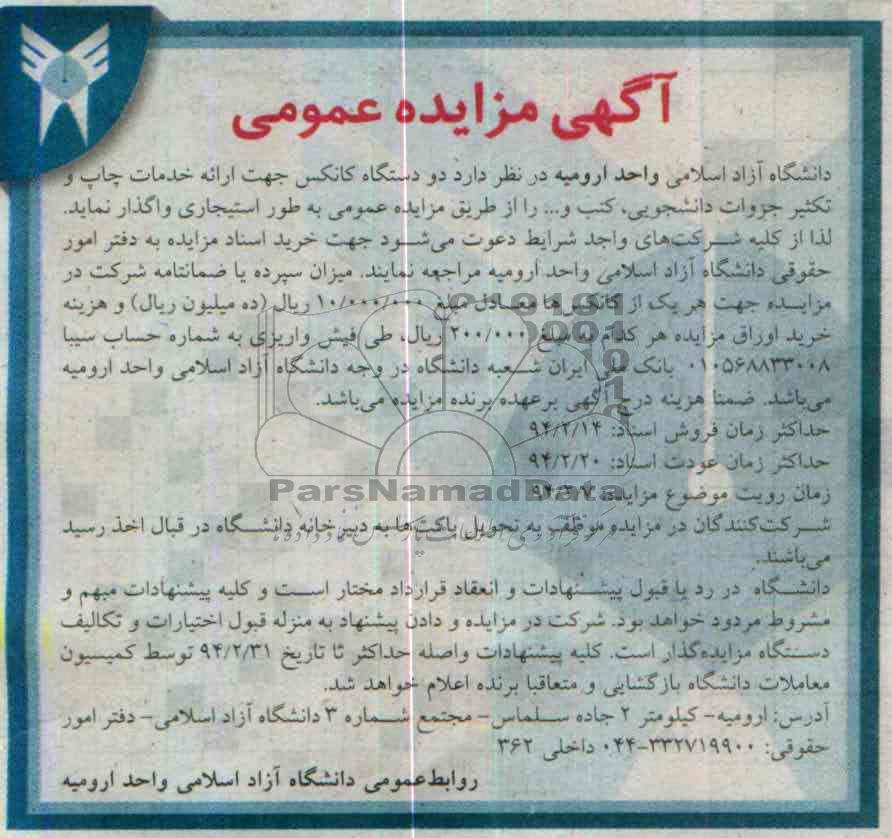 آگهی مزایده عمومی
دانشگاه آزاد اسلامی واحد ارومیه در نظر دارد دو دستگاه کانکس جهت ارائه خدمات چاپ و
تکثیر جزوات دانشجویی، کتب و... را از طریق مزایده عمومی به طور استیجاری واگذار نماید.
لذا از کلیه شرکت‌های واجد شرایط دعوت می‌شود جهت خرید اسناد مزایده به دفتر امور
حقوقی دانشگاه آزاد اسلامی واحد ارومیه مراجعه نمایند. میزان سپرده یا ضمانتنامه شرکت در
مزایده جهت هر یک از کانکس‌ها معادل مبلغ ۱۰/۰۰۰/۰۰۰ ریال (ده میلیون ریال) و هزینه
خرید اوراق مزایده هر کدام به مبلغ ۲۰۰/۰۰۰ ریال، طی فیش واریزی به شماره حساب سیبا
۰۱۰۵۶۸۸۳۳۰۰۸ بانک ملی ایران شعبه دانشگاه در وجه دانشگاه آزاد اسلامی واحد ارومیه
می‌باشد. ضمنا هزینه درج آگهی برعهده برنده مزایده می‌باشد.
حداکثر زمان فروش اسناد: ۹۴/۲/۱۴
حداکثر زمان عودت اسناد: ۹۴/۲/۲۰
زمان رویت موضوع مزایده:
ParsNamadData
شرکت‌کنندگان در مزایده موظف به تحویل پاکت‌ها به دبیرخانه دانشگاه در قبال اخذ رسید
می‌باشند.
دانشگاه در رد یا قبول پیشنهادات و انعقاد قرارداد مختار است و کلیه پیشنهادات مبهم و
مشروط مردود خواهد بود. شرکت در مزایده و دادن پیشنهاد به منزله قبول اختیارات و تکالیف
دستگاه مزایده‌گذار است. کلیه پیشنهادات واصله حداکثر تا تاریخ ۹۴/۲/۳۱ توسط کمیسیون
معاملات دانشگاه بازگشایی و متعاقبا برنده اعلام خواهد شد.
آدرس: ارومیه- کیلومتر ۲ جاده سلماس- مجتمع شماره ۳ دانشگاه آزاد اسلامی- دفتر امور
حقوقی: ۳۳۲۷۱۹۹۰۰-۰۴۴ داخلی ۳۶۲
روابط‌عمومی دانشگاه آزاد اسلامی واحد ارومیه